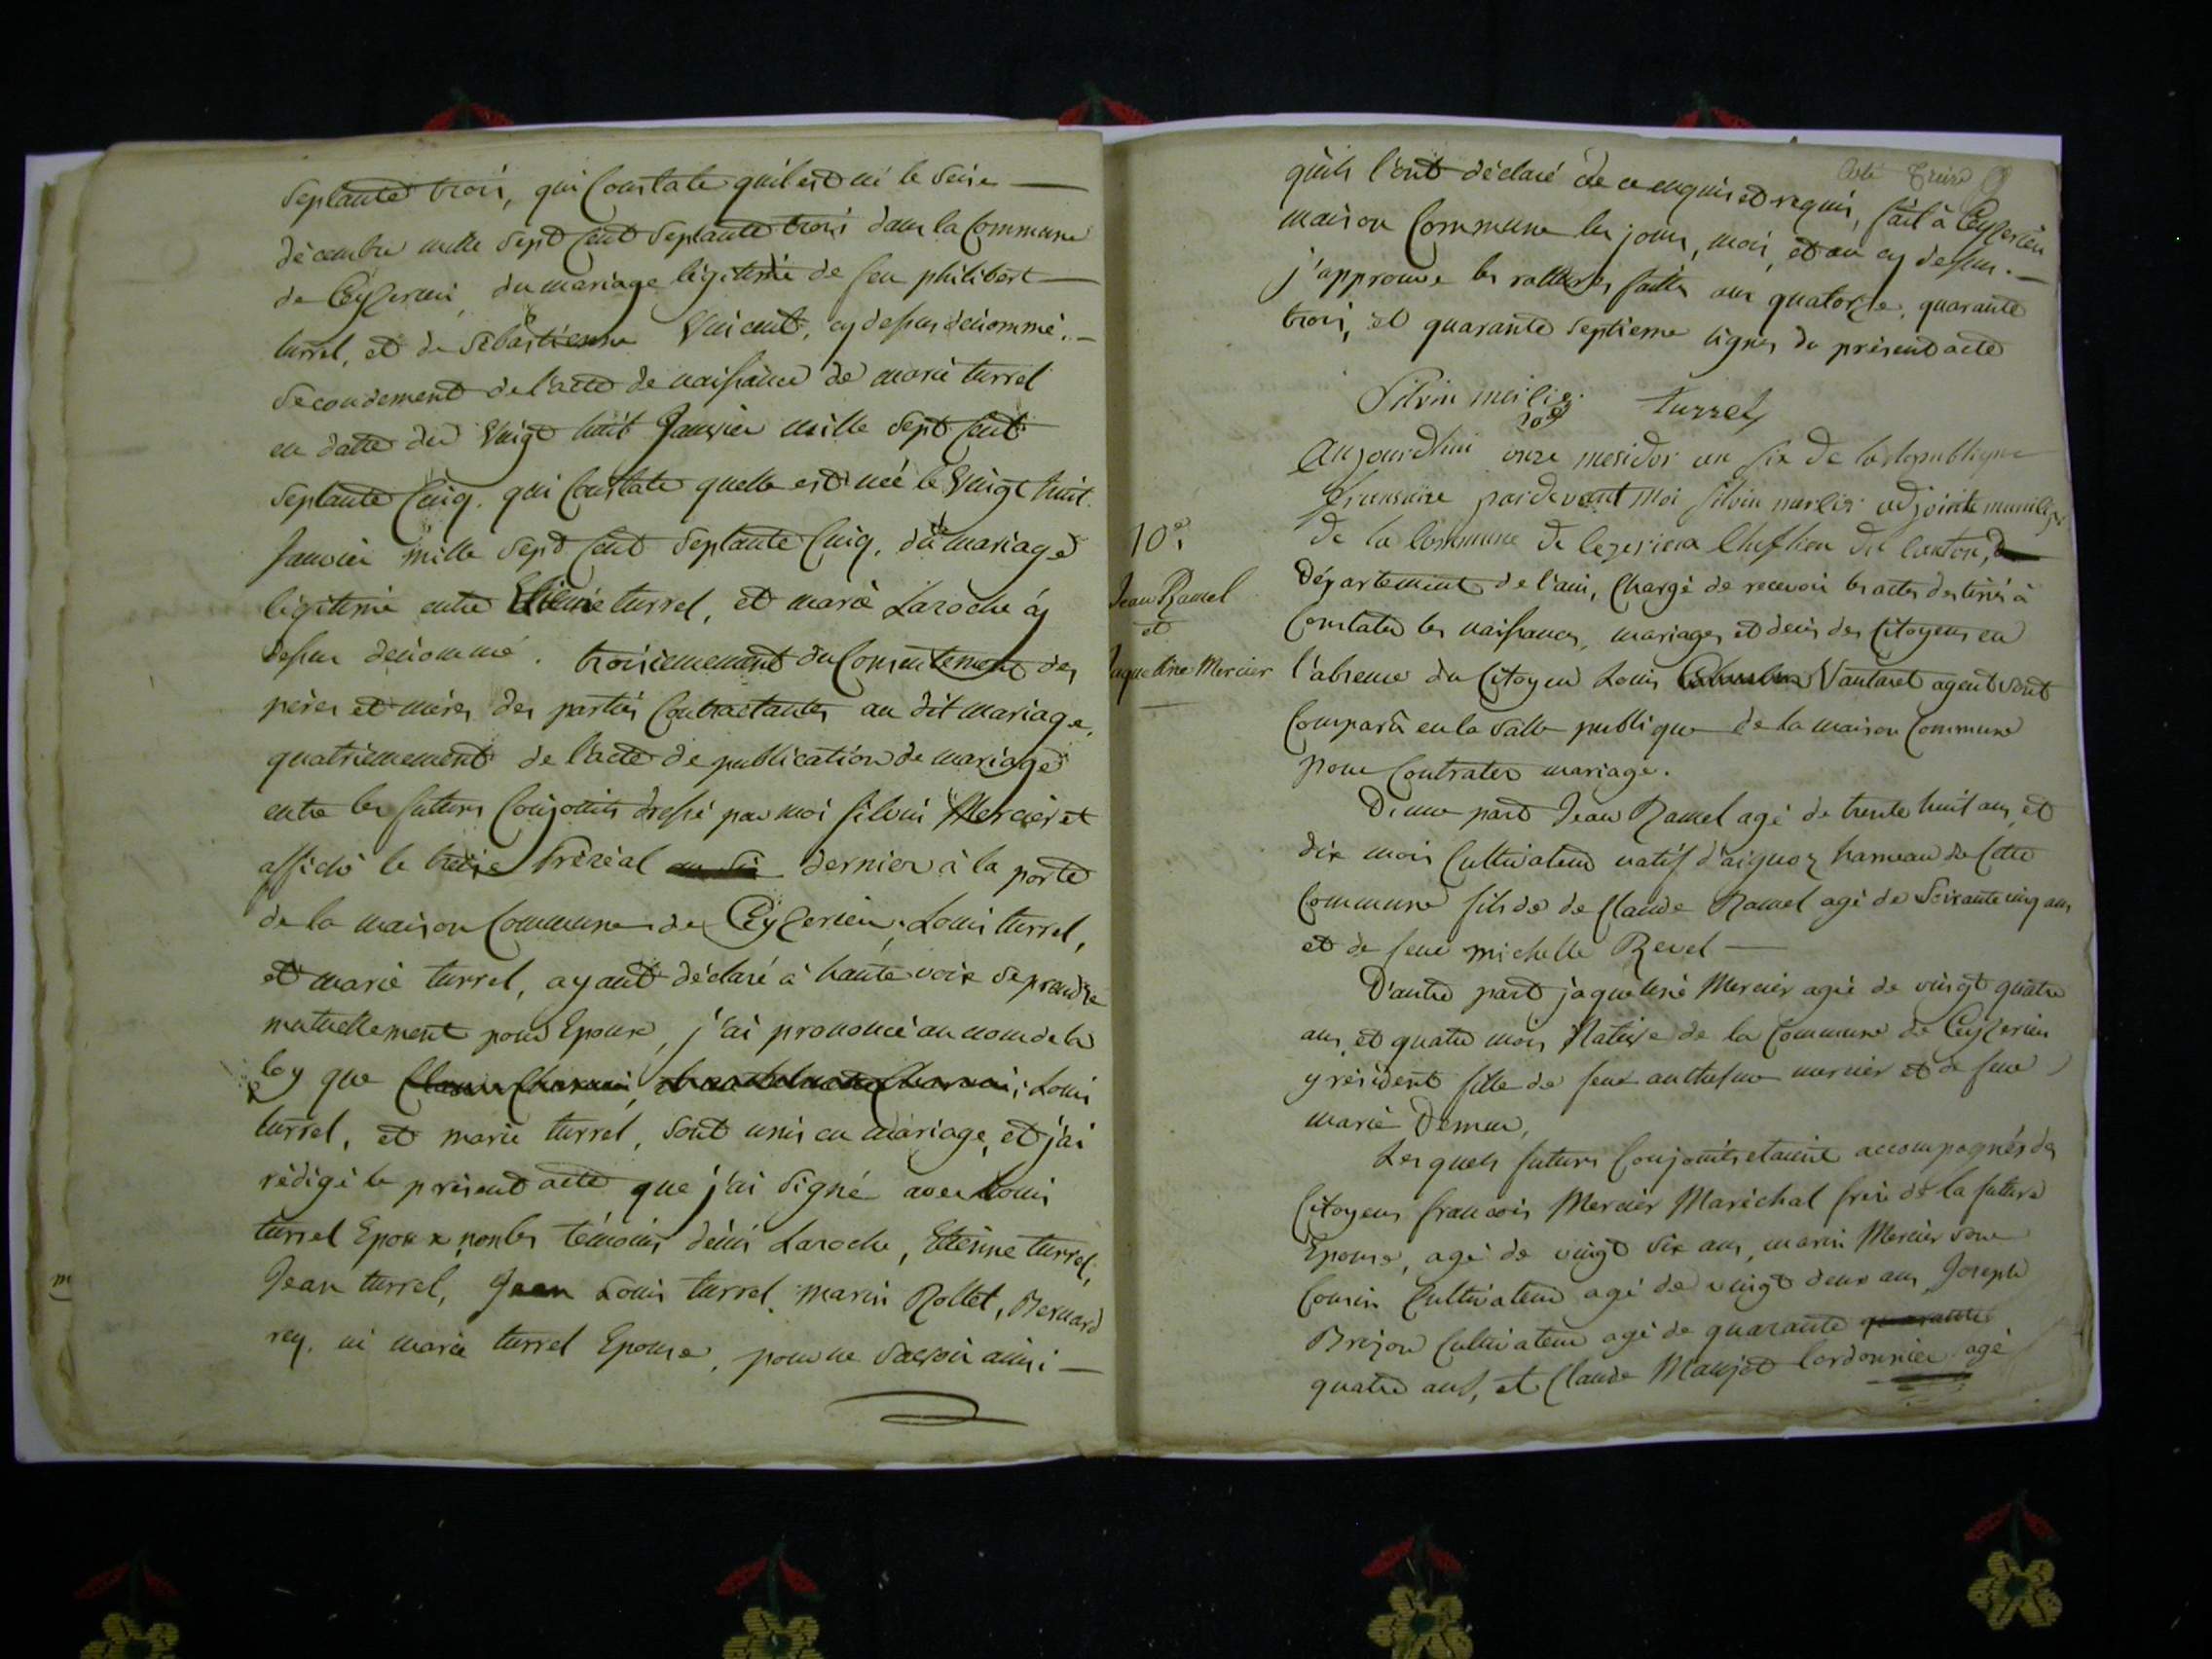 Septante trois, qui Constate qu'il est né le Seize
décembre mille Sept Cent Septante trois dans la Commune
de Ceyzerieu, du mariage légitimé de feu philibert
turrel, et de Sébastienne Vincent, cy dessus dénommé.
Secondement de l'acte de naissance de marie turrel
en datte du Vingt huit Janvier mille Sept Cent
Septante Cinq. qui Constate quelle est née le Vingt huit
Janvier mille Sept Cent Septante Cinq, du mariage
légitimé entre Etienne turrel, et marie Laroche cy
dessus dénommé. troisiemement du Consentement des
pères et mères des parties Contractantes au dit mariage,
quatrièmement de l'acte de publication de mariage
entre les futturs Conjoints dressé par moi silvin Mercier et
affiché le treize Préréal dernier à la porte
de la maison Commune de Ceyzerieu, Louis turrel,
et marie turrel, ayant déclaré à haute voix se prendre
mutuellement pour Epoux, j'ai prononcé au nom de la
loy que Louis
turrel, et marie turrel, sont unis en mariage, et j'ai
rédigé le présent acte que j'ai signé avec Louis
turrel Epoux, non les témoins dénis Laroche, Etienne turrel,
Jean turrel, Jean Louis turrel, marin Rollet, Bernard
rey, ni marie turrel Epouse, pour ne Savoir ainsi
qu'ils l'ont déclaré de ce enquis et requis, fait à Ceyzerieu
maison Commune les jour, mois, et an cy dessus.
j'approuve les rattures faittes aux quatorze, quarante
trois, et quarante Septieme lignes du présent acte
Silvin Turrel
10e.
Jean Ramel
et
Jaqueline Mercier
Aujourdhui onze mesidor an six de la Republique
fransaise pardevant moi silvin adjoint
de la Commune de Cezerieux Cheflieu du Canton,
Département de l'ain, Chargé de recevoir les actes destinés à
Constater les naissances, mariages et décès des Citoyens en
l'absence du Citoyen Louis Vautaret agent sont
Comparu en la Salle publique de la maison Commune
pour Contrater mariage.
D'une part Jean Ramel agé de trente huit ans, et
dix mois Cultivateur natif d'aignoz hameau de Cette
Commune fils de de Claude Ramel agé de Soixante cinq ans
et de feue michelle Revel
D'autre part jaqueline Mercier agée de vingt quatre
ans, et quatre mois Native de la Commune de Ceyzerieu
y résident fille de feux anthelme mercier et de feue
marie Demeur,
Lesquels futurs Conjoints etaient accompagnés des
Citoyens francois Mercier Maréchal frère de la future
Epouse, agé de vingt Six ans, marin Mercier son
Cousin Cultivateur agé de vingt deux ans, Joseph
Brojon Cultivateur agé de quarante quarante
quatre ans, et Claude Manjot Cordonnier agé